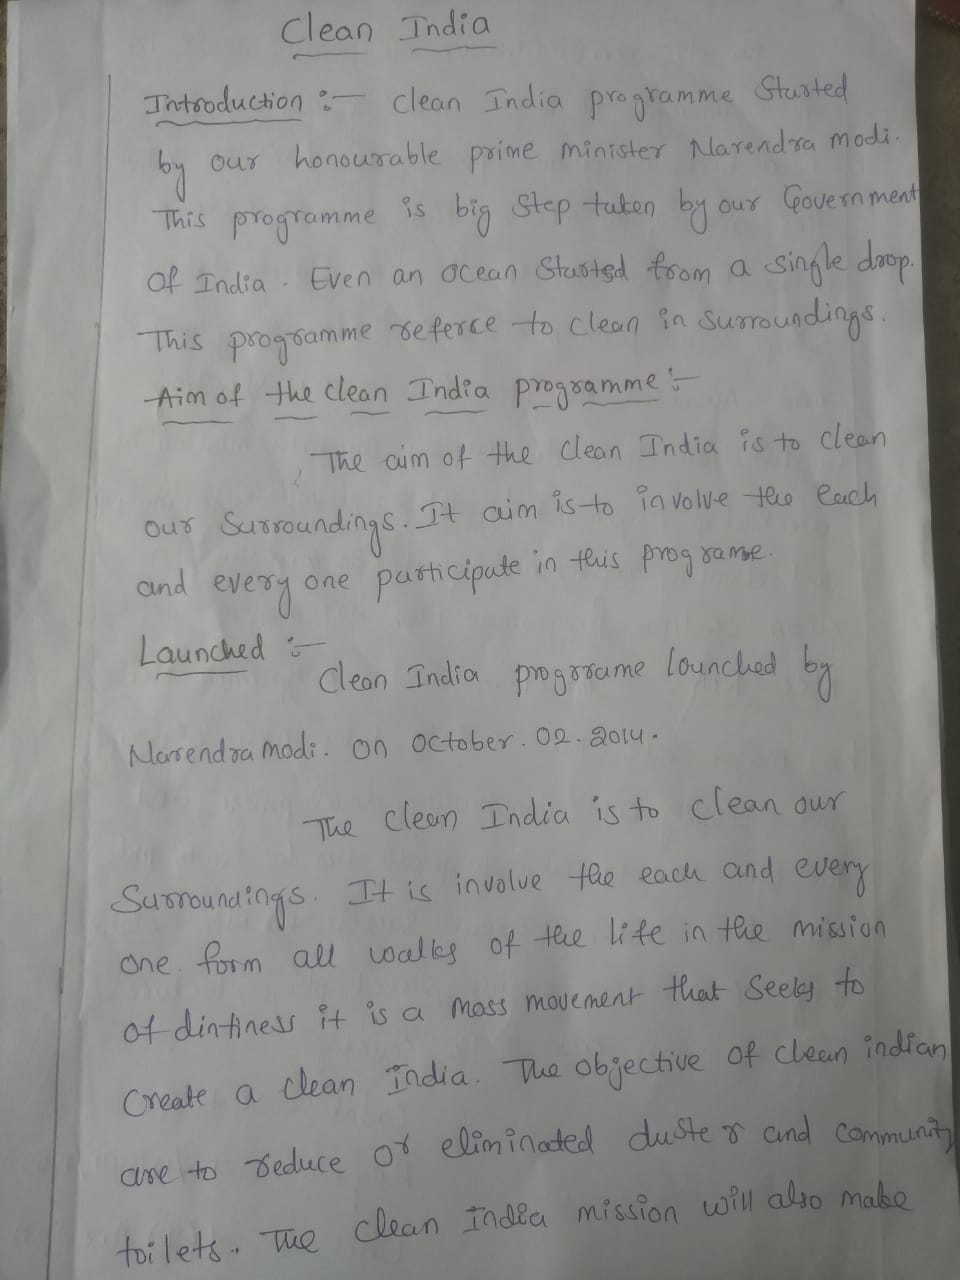 Clean India
Introduction :- Clean India programme Started
by our honourable prime minister Narendra modi.
This programme is big Step taken by our Government
Of India. Even an ocean Started from a single drop.
This programme referce to clean in surroundings.
Aim of the clean India programme :-
The aim of the clean India is to clean
our Surroundings. It aim is to involve the each
and every one participate in this programe.
Launched :-
Clean India progrrame lounched by
Narendra modi. on october. 02. 2014.
The clean India is to clean our
Surroundings. It is involve the each and every
one. form all walks of the life in the mission
of dintiness it is a mass movement that seeks to
create a clean India. The objective of clean indian
are to reduce or eliminated duster and community
toilets. The clean India mission will also make